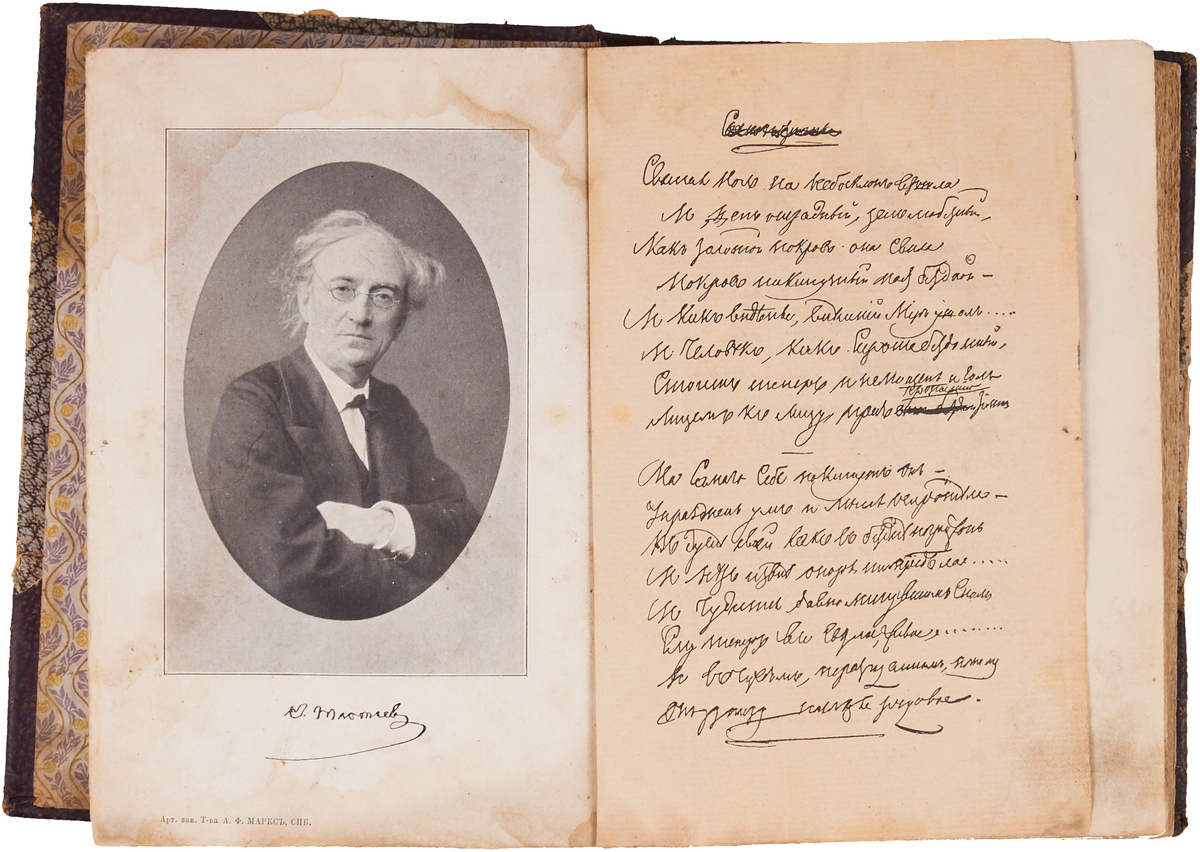 Ѳ. Тютчевъ
Арт. зав. Т-ва А. Ф. МАРКСЪ, СПБ.
Святая ночь на небосклонъ взошла
И день отрадный, день любезный,
Какъ золотой покровъ она свила
Покровъ накинутый надъ бездной —
И какъ видѣнье, внѣшній міръ ушелъ.....
И человѣкъ, какъ сирота бездомный,
Стоитъ теперь и немощенъ и голъ
Лицемъ къ лицу, предъ пропастію
На самого себя покинутъ онъ —
Упраздненъ умъ и мысль осиротѣла —
Въ душѣ своей какъ въ безднѣ погруженъ
И нѣтъ извнѣ опоры ни предѣла......
И чудится давно минувшимъ сномъ
Ему теперь все свѣтлое, живое........
И въ чуждомъ, неразгаданномъ, ночномъ
Онъ узнаетъ наслѣдье родовое.